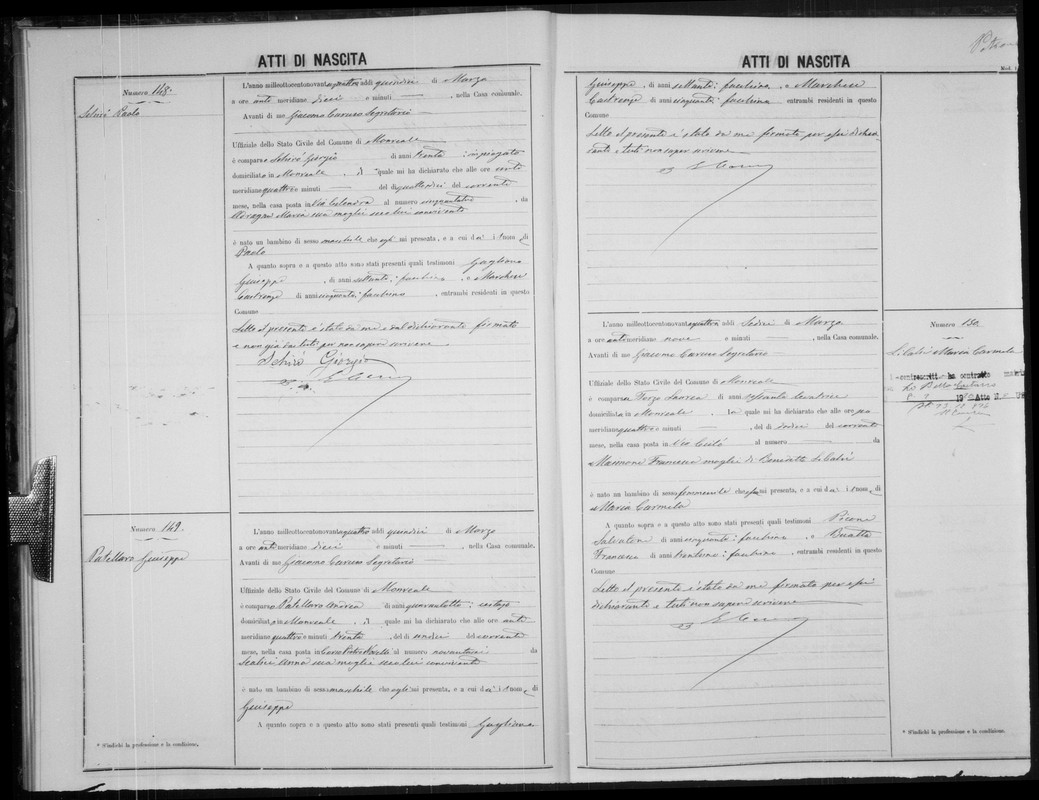 ATTI DI NASCITA
Numero 148.
Schirò Paolo
L'anno milleottocentonovantaquattro addì quindici di Marzo
a ore anti meridiane dieci e minuti —, nella Casa comunale.
Avanti di me Giacomo Caruso Segretario
Uffiziale dello Stato Civile del Comune di Monreale
è comparso Schirò Giorgio di anni trenta impiegato
domiciliato in Monreale, il quale mi ha dichiarato che alle ore
meridiane quattro e minuti — del dì quattordici del corrente
mese, nella casa posta in Via al numero cinquantatre, da
Maria sua moglie seco lui convivente
è nato un bambino di sesso maschile che egli mi presenta, e a cui dà i l nome di
Paolo
A quanto sopra e a questo atto sono stati presenti quali testimoni Gaglione
Giuseppe, di anni settanta: facchino, e Marchese
Castrenze di anni cinquanta: facchino, entrambi residenti in questo
Comune
Letto il presente è stato da me e dal dichiarante firmato
e non già dai testi per non sapere scrivere
Schirò Giorgio
Numero 149.
Patellaro Giuseppe
L'anno milleottocentonovantaquattro addì quindici di Marzo
a ore anti meridiane dieci e minuti —, nella Casa comunale.
Avanti di me Giacomo Caruso Segretario
Uffiziale dello Stato Civile del Comune di Monreale
è comparso Patellaro Andrea di anni quarantotto:
domiciliato in Monreale, il quale mi ha dichiarato che alle ore anti
meridiane quattro e minuti trenta, del dì undici del corrente
mese, nella casa posta in Corso Pietro Novelli al numero da
Anna sua moglie seco lui convivente
è nato un bambino di sesso maschile che egli mi presenta, e a cui dà i l nome di
Giuseppe
A quanto sopra e a questo atto sono stati presenti quali testimoni Gaglione
* S'indichi la professione o la condizione.
ATTI DI NASCITA
Mod. 1
Giuseppe, di anni settanta: facchino, e Marchese
Castrenze di anni cinquanta: facchino entrambi residenti in questo
Comune
Letto il presente è stato da me firmato per essi dichia
rante e testi non saper scrivere
L'anno milleottocentonovantaquattro addì Sedici di Marzo
a ore antimeridiane nove e minuti —, nella Casa comunale.
Avanti di me Giacomo Caruso Segretario
Uffiziale dello Stato Civile del Comune di Monreale
è comparsa Terzo Laurea di anni sessanta levatrice
domiciliata in Monreale, la quale mi ha dichiarato che alle ore
meridiane quattro e minuti —, del dì dodici del corrente
mese, nella casa posta in Via al numero — da
Mannone Francesca moglie di Benedetto Li Calsi
è nato un bambino di sesso femminile che essa mi presenta, e a cui dà i l nome di
Maria Carmela
A quanto sopra e a questo atto sono stati presenti quali testimoni Picone
Salvatore di anni cinquanta: facchino, e Buatta
Francesco di anni trentuno: facchino, entrambi residenti in questo
Comune
Letto il presente è stato da me firmato per essi
dichiarante e testi non sapere scrivere
Numero 150.
Li Calsi Maria Carmela
controscritt ha contratto matri
Lo Bello
19 Atto N.
* S'indichi la professione o la condizione.